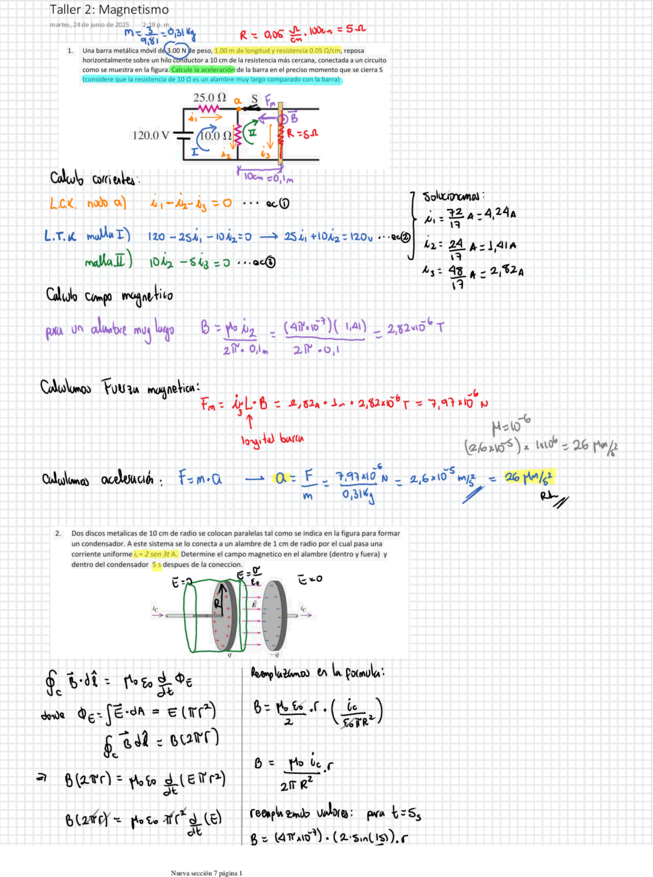 Taller 2: Magnetismo
martes, 24 de junio de 2025 2:19 p. m.
m = 3/9,81 = 0,31 kg
R = 0,05 Ω/cm · 100cm = 5Ω
1. Una barra metálica móvil de 3.00 N de peso, 1.00 m de longitud y resistencia 0.05 Ω/cm, reposa
horizontalmente sobre un hilo conductor a 10 cm de la resistencia más cercana, conectada a un circuito
como se muestra en la figura. Calcule la aceleración de la barra en el precismo momento que se cierra S
(considere que la resistencia de 10 Ω es un alambre muy largo comparado con la barra)
25.0 Ω a S Fm
i1 B
120.0 V 10.0 Ω II R = 5Ω
I i2 i3
10cm = 0,1m
Calculo corrientes:
L.C.K. nodo a) i1 - i2 - i3 = 0 ... ec①
L.T.K malla I) 120 - 25i1 - 10i2 = 0 → 25i1 + 10i2 = 120v ... ec②
malla II) 10i2 - 5i3 = 0 ... ec③
Solucionamos:
i1 = 72/17 A = 4,24A
i2 = 24/17 A = 1,41A
i3 = 48/17 A = 2,82A
Calculo campo magnetico
para un alambre muy largo B = μo i2 / 2π · 0,1m = (4π×10⁻⁷)(1,41) / 2π · 0,1 = 2,82×10⁻⁶ T
Calculamos Fuerza magnetica:
Fm = i3 L · B = 2,82A · 1m · 2,82×10⁻⁶ T = 7,97×10⁻⁶ N
↑
longitud barra
μ = 10⁻⁶
(2,6×10⁻⁵) × 1×10⁶ = 26 μm/s²
Calculamos aceleración: F = m · a → a = F/m = 7,97×10⁻⁶ N / 0,31kg = 2,6×10⁻⁵ m/s² = 26 μm/s²
2. Dos discos metalicas de 10 cm de radio se colocan paralelas tal como se indica en la figura para formar
un condensador. A este sistema se lo conecta a un alambre de 1 cm de radio por el cual pasa una
corriente uniforme i = 2 sen 3t A. Determine el campo magnetico en el alambre (dentro y fuera) y
dentro del condensador 5 s despues de la coneccion.
E=0 E = σ/εo E≈0
R E
ic ic
q -q
∮c B · dl = μo εo d/dt ΦE
donde ΦE = ∫E · dA = E(πr²)
∮c B dl = B(2πr)
⇒ B(2πr) = μo εo d/dt (E πr²)
B(2πr) = μo εo πr² d/dt (E)
Reemplazamos en la formula:
B = μo εo / 2 · r · (ic / εo πR²)
B = μo ic / 2π R² · r
reemplazando valores: para t = 5s
B = (4π×10⁻⁷) · (2 · sin(15)) · r
Nueva sección 7 página 1